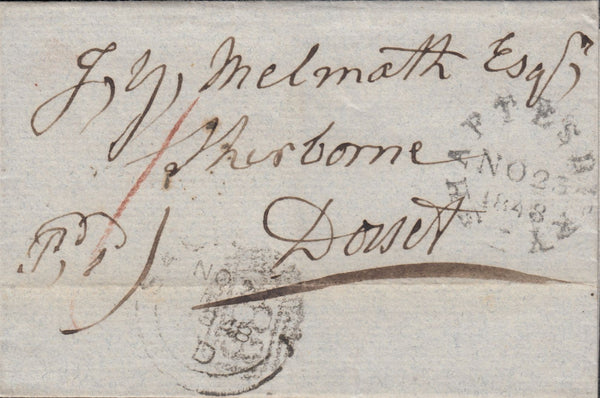 J, Y, Melmath Esqr,
Sherborne
Dorset
SHAFTESBURY
NO 23
1848
Pd, 1
NO
1848